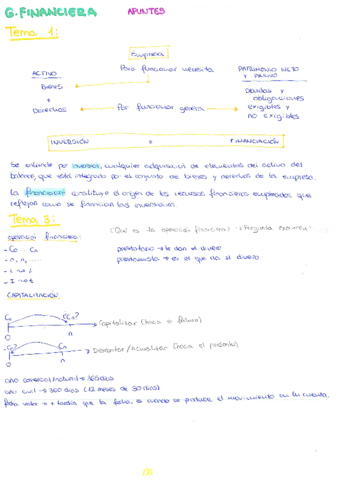 G. FINANCIERA APUNTES
Tema 1:
Empresa
Para funcionar necesita
ACTIVO
PATRIMONIO NETO
Y PASIVO
Bienes
+
Derechos
Por funcionar genera
Deudas y
obligaciones
exigibles y
no exigibles
INVERSIÓN = FINANCIACIÓN
Se entiende por inversión, cualquier adquisición de elementos del activo del
balance, que está integrado por el conjunto de bienes y derechos de la empresa.
La financiación constituye el origen de los recursos financieros empleados que
reflejan como se financian las inversiones.
Tema 3:
operación financiera:
¿Qué es la operación financiera? → Pregunta examen
- Co ... Cn
- 0, n, ...
prestatario → le dan el dinero
prestamista → es el que da el dinero
CAPITALIZACIÓN:
Co ¿Cn?
→ Capitalizar (hacia el futuro)
0 n
¿Co? Cn
→ Descontar / Actualizar (hacia el presente)
0 n
año comercial/natural → 365 días
año civil → 360 días (12 meses de 30 días)
fecha valor → + tardía que la fecha, es cuando se produce el movimiento en tu cuenta.